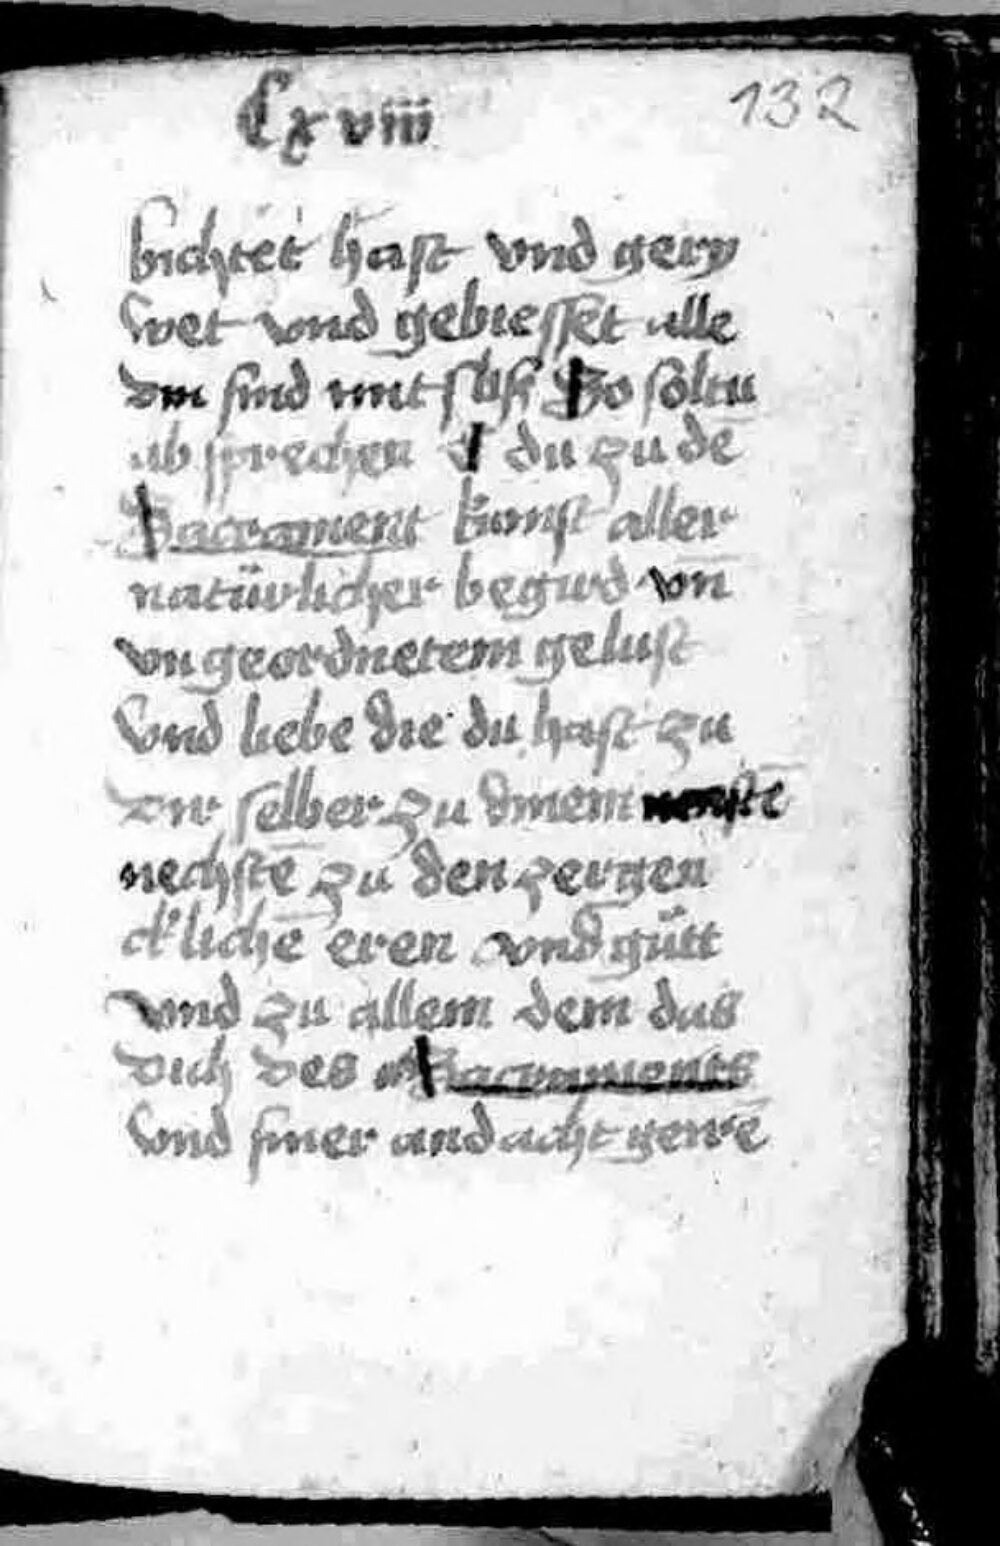 Cxviii 132
bichtet hast vnd gerü
wet vnd gebiesset alle
din sind mit flisß So soltu
ab sprechen E du zu dē
Sacrament kumst aller
natürlicher begird vn̄
vngeordnetem gelust
Vnd liebe die du hast zu
dir selber zu dinem
nechstē zu den zergen
cklichē eren vnd gůtt
vnd zu allem dem das
dich des Sacraments
Vnd siner andacht